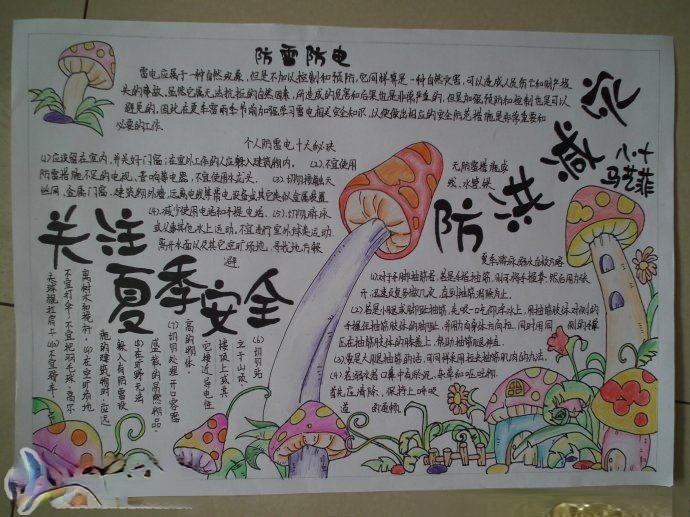 防雷防电
雷电应属于一种自然现象，但是不加以控制和预防，它同样算是一种自然灾害，可以造成人员伤亡和财产损
失的事故。虽然它属无法抗拒的自然因素，所造成的危害和后果也是非常严重的，但是加强预防和控制也是可以
避免的，因此在夏季雷雨季节前加强学习雷电相关安全知识，以便做出相应的安全防范措施是非常重要和
必要的工作。
个人防雷电十大秘诀
(1)应该留在室内，并关好门窗；在室外工作的人应躲入建筑物内。(2)不宜使用
无防雷措施或
防雷措施不足的电视、音响等电器，不宜使用水龙头。(3)切勿接触天
线、水管、铁
丝网、金属门窗、建筑物外墙，远离电线等带电设备或其它类似金属装置
(4)减少使用电话和手提电话。(5)切勿游泳
或从事其他水上运动，不宜进行室外球类运动，
离开水面以及其它空旷场地，寻找地方躲
避
关注
夏季安全
(6)切勿站
立于山顶、
楼顶上或其
它接近导电性
高的物体。
(7)切勿处理开口容器
盛载的易燃物品。
(8)在旷野无法
躲入有防雷设
施的建筑物时，应远
离树木和桅杆。(9)在空旷场地
不宜打伞，不宜把羽毛球、高尔
夫球棍扛肩上。(10)不宜骑车
防洪
八、十
马艺菲
夏季游泳溺水自救方略
(1)对于手脚抽筋者，若是手指抽筋，则可将手握拳，然后用力张
开，迅速反复多做几次，直到抽筋消除为止。
(2)若是小腿或脚趾抽筋，先吸一口气仰浮水上，用抽筋肢体对侧的
手握住抽筋肢体的脚趾，并用力向身体方向拉，同时用同侧的手掌
压在抽筋肢体的膝盖上，帮助抽筋腿伸直。
(3)要是大腿抽筋的话，可同样采用拉长抽筋肌肉的办法。
(4)若溺水者口鼻中有淤泥、杂草和呕吐物，
首先应清除，保持上呼吸
道的通畅